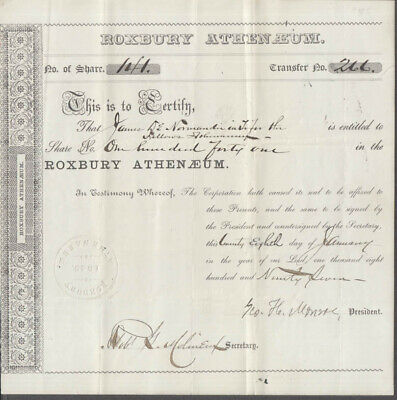 ROXBURY ATHENÆUM.
No. of Share. 141. Transfer No. 266.
This is to Certify,
That James De Normandie in Tr for the
Fellows is entitled to
Share No. One hundred forty one in the
ROXBURY ATHENÆUM.
In Testimony Whereof, The Corporation hath caused its seal to be affixed to
these Presents, and the same to be signed by
the President and countersigned by the Secretary,
this twenty Eighth day of January
in the year of our Lord, one thousand eight
hundred and Ninety Seven
Geo. H. Monroe, President.
Secretary.
ROXBURY ATHENÆUM.